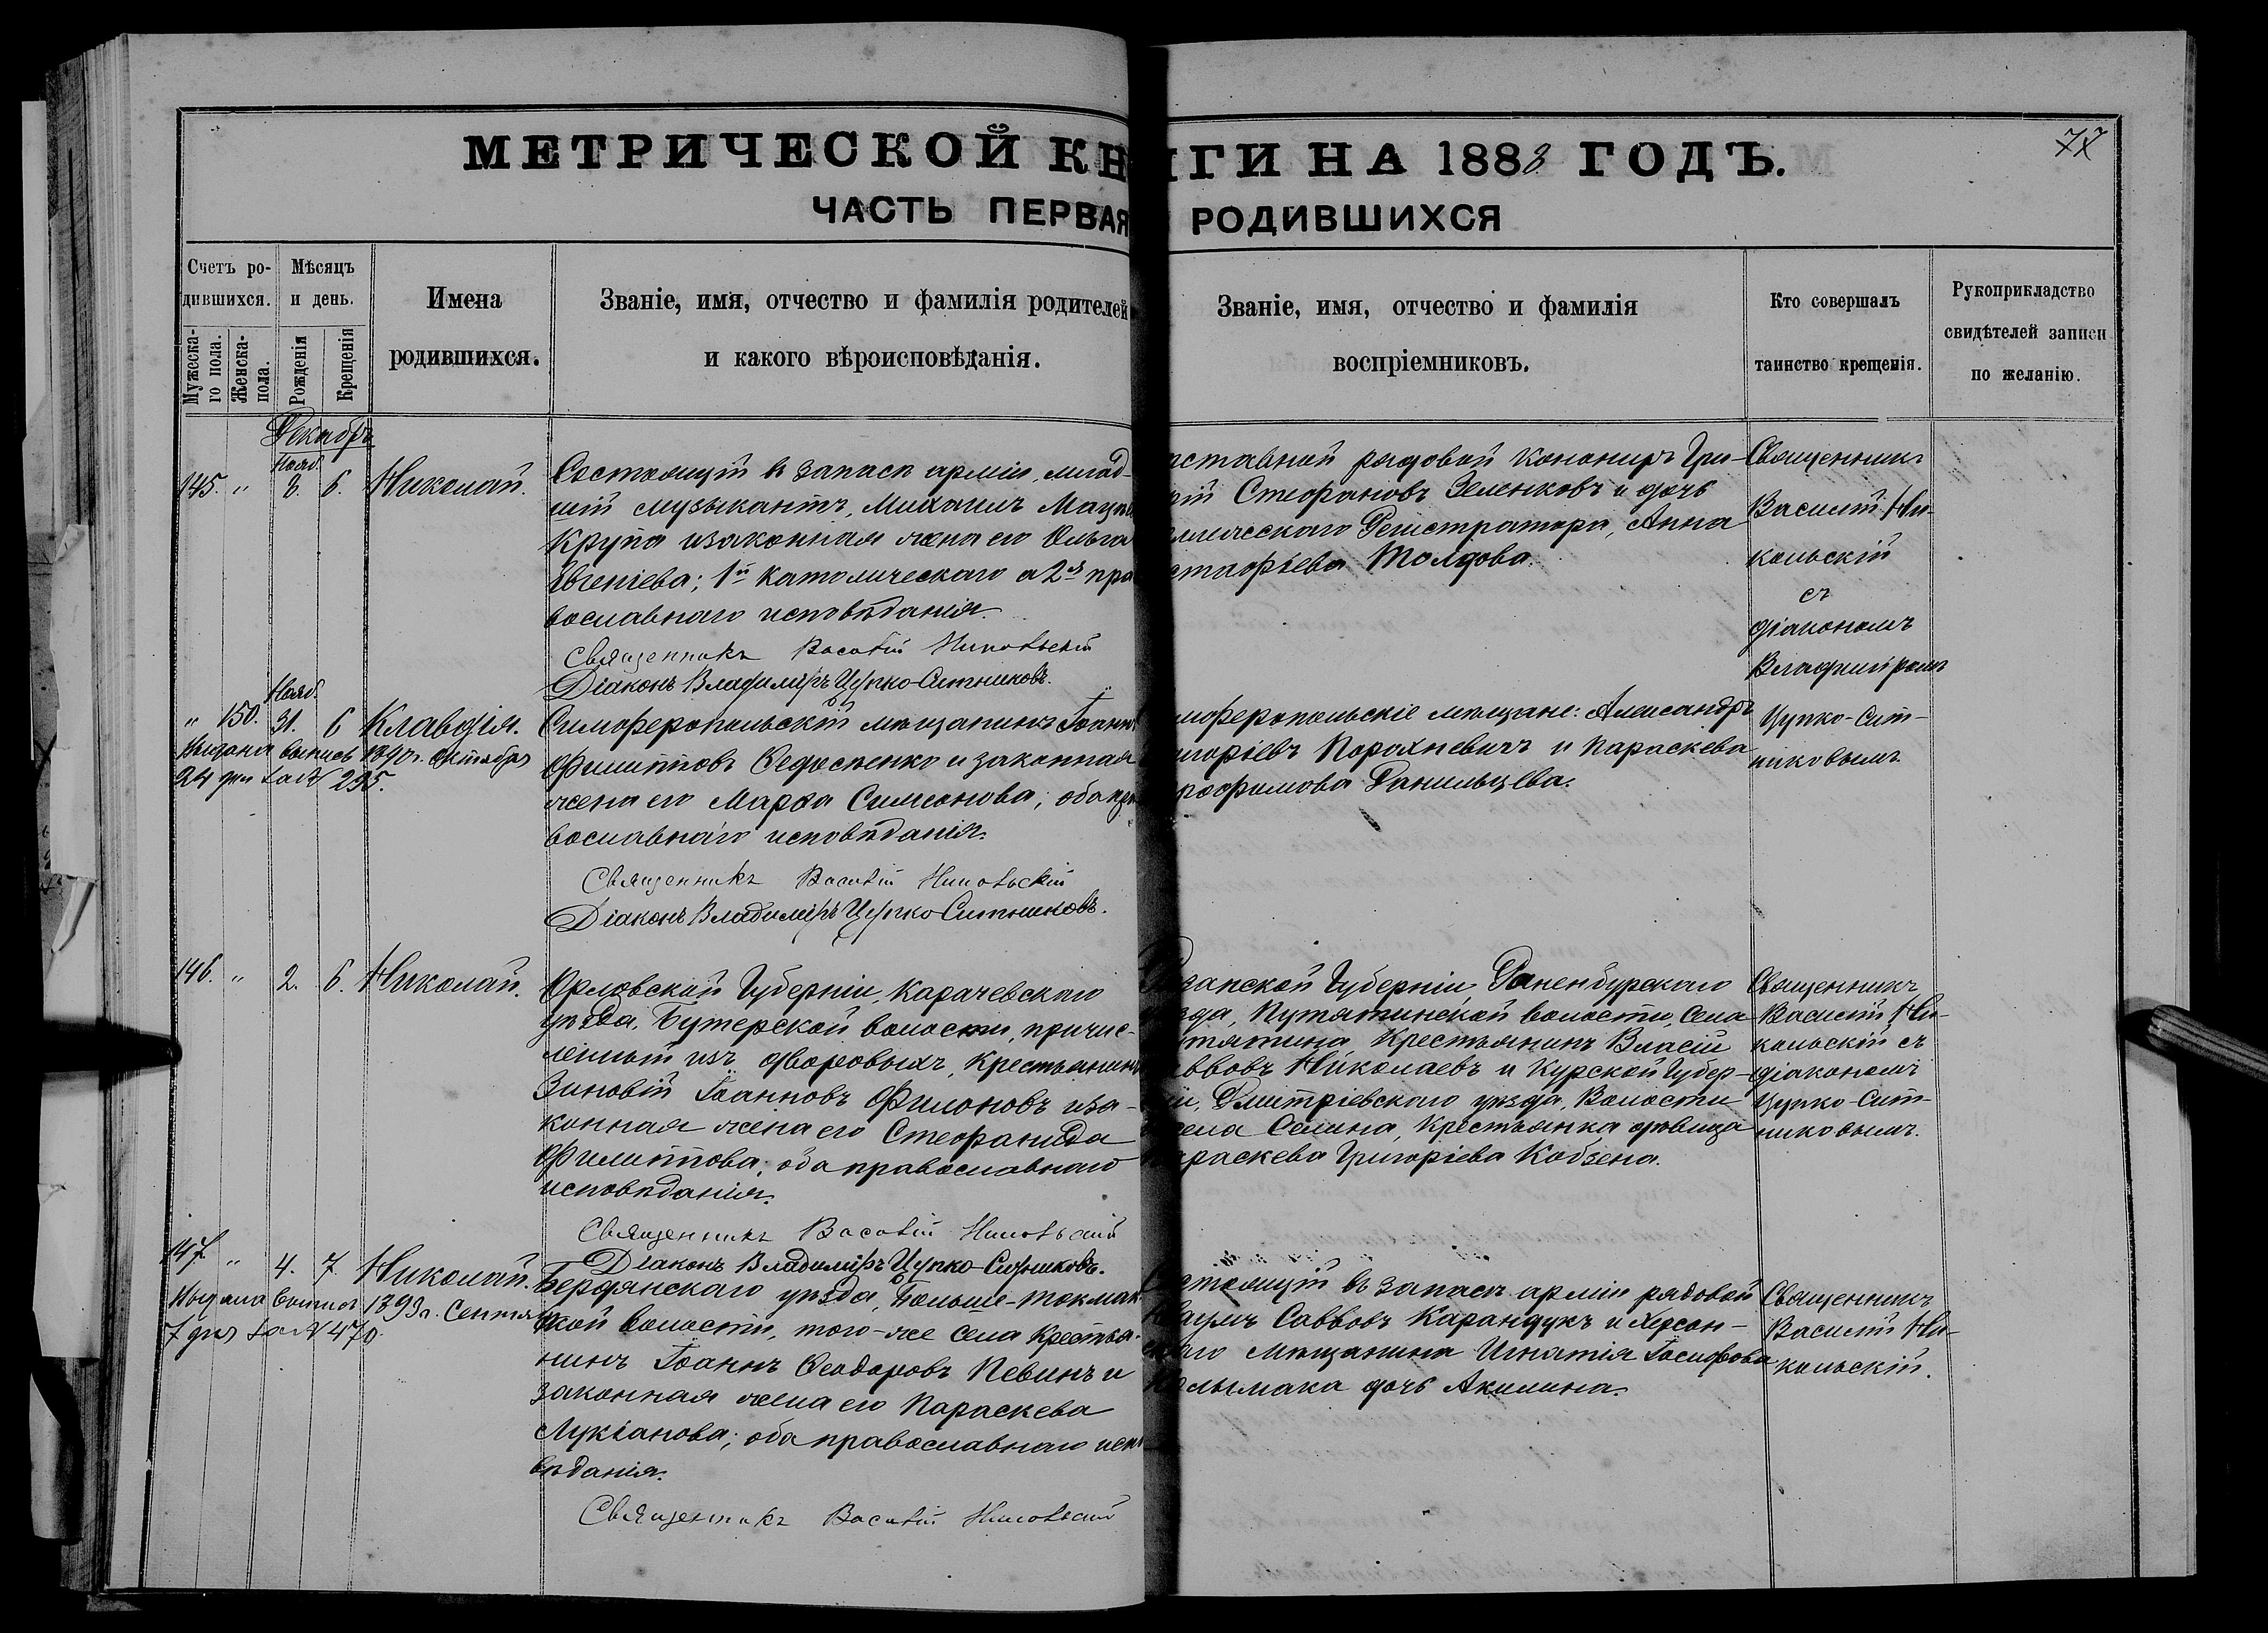 МЕТРИЧЕСКОЙ КН
ИГИ НА 1888 ГОДЪ.
ЧАСТЬ ПЕРВАЯ
РОДИВШИХСЯ
Счетъ ро-
дившихся.
Мужеска-
го пола.
Женска-
пола.
Мѣсяцъ
и день.
Рожденія
Крещенія
Имена
родившихся.
Званіе, имя, отчество и фамилія родителей
и какого вѣроисповѣданія.
Званіе, имя, отчество и фамилія
воспріемниковъ.
Кто совершалъ
таинство крещенія.
Рукоприкладство
свидѣтелей записи
по желанію.
Декабрь
Нояб.
145. " 8. 6. Николай.
Состоящій въ запасѣ арміи, млад-
шій музыкантъ, Михаилъ
Крупа и законная жена его Ольга
Евгеніева; 1й католическаго а 2я пра
вославнаго исповѣданія.
Священникъ Василій Никольскій
Діаконъ Владиміръ Цупко-Ситниковъ.
ставной рядовой канониръ Гри-
рій Стефановъ Зеленковъ и дочь
Регистратора, Анна
Толдова.
Священникъ
Василій Ни-
кольскій
съ
діакономъ
Владиміромъ
Цупко-Сит-
никовымъ
Нояб.
" 150. 31. 6 Клавдія.
Выдана выпись 1890 г. Октября
24 дня за № 235.
Симферопольскій мѣщанинъ Іоаннъ
Филипповъ Федосѣенко и законная
жена его Марѳа Симеонова; оба пра
вославнаго исповѣданія.
Священникъ Василій Никольскій
Діаконъ Владиміръ Цупко Ситниковъ.
мферопольскіе мѣщане: Александръ
игоріевъ Порахневичъ и Параскева
рофимова Данильцева.
146. " 2. 6. Николай.
Орловской Губерніи, Карачевскаго
уѣзда, Бутерской волости, причис-
ленный изъ дворовыхъ, Крестьянинъ
Зиновій Іоанновъ Филоновъ и за-
конная жена его Стефанида
Филиппова; оба православнаго
исповѣданія.
Священникъ Василій Никольскій
Діаконъ Владиміръ Цупко-Ситниковъ.
язанской Губерніи, Раненбурскаго
зда, Путятинской волости, села
тятина Крестьянинъ Власій
ввовъ Николаевъ и Курской Губер-
іи, Дмитріевскаго уѣзда, Волости
села Селина, Крестьянка дѣвица
араскева Григоріева Кобзена.
Священникъ
Василій Ни-
кольскій съ
діакономъ
Цупко-Сит-
никовымъ.
147. " 4. 7. Николай.
Выдана выпись 1893 г. Сентя
7 дня за № 470.
Бердянскаго уѣзда, Больше-Токмак
ской волости, того-же села Крестья-
нинъ Іоаннъ Ѳеодоровъ Певинъ и
законная жена его Параскева
Лукіанова; оба православнаго испо
вѣданія.
Священникъ Василій Никольскій
стоящій въ запасѣ арміи рядовой
Наумъ Саввовъ Карандукъ и Херсон-
скаго Мѣщанина Игнатія Іосифова
олымака дочь Акилина.
Священникъ
Василій Ни-
кольскій.